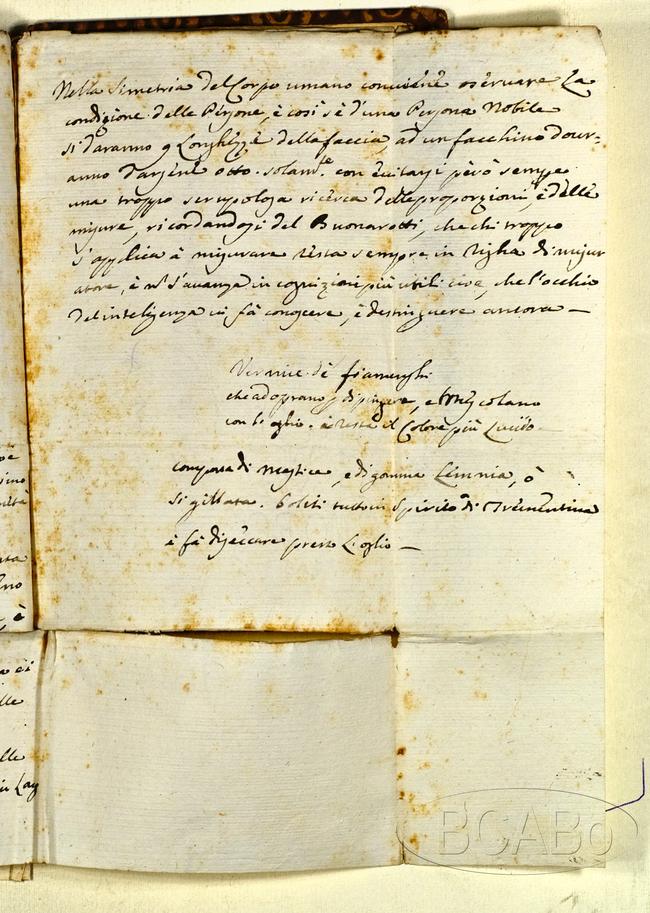 Nella Simetria del Corpo umano conviene oservare La
condizione delle Persone, è così s'è d'una Persona Nobile
si daranno 9 Longhezze della faccia, ad un facchino dovr=
anno darsene otto solam.te con evitarsi però sempre
una troppo scrupolosa ricerca delle proporzioni è delle
misure, ricordandosi del Buonarotti, che chi troppo
s'applica à misurare resta sempre in Righa di misur
atore, è n'n s'avanza in cognizioni più utili cioè, che l'occhio
del inteligenza ci fà conoscere, è destinguere ancora —
Vernice de fiamenghi
che adoprano p dipingere, e Mescolano
con l'oglio. è resta il Colore più Lucido
composa di Mastice, e di gomma Lemnia, ò
sigillata. Soliti tutto in Spirito di Trementina
è fà diseccare presto L'oglio —
lle
è
lle
lle
BCABo